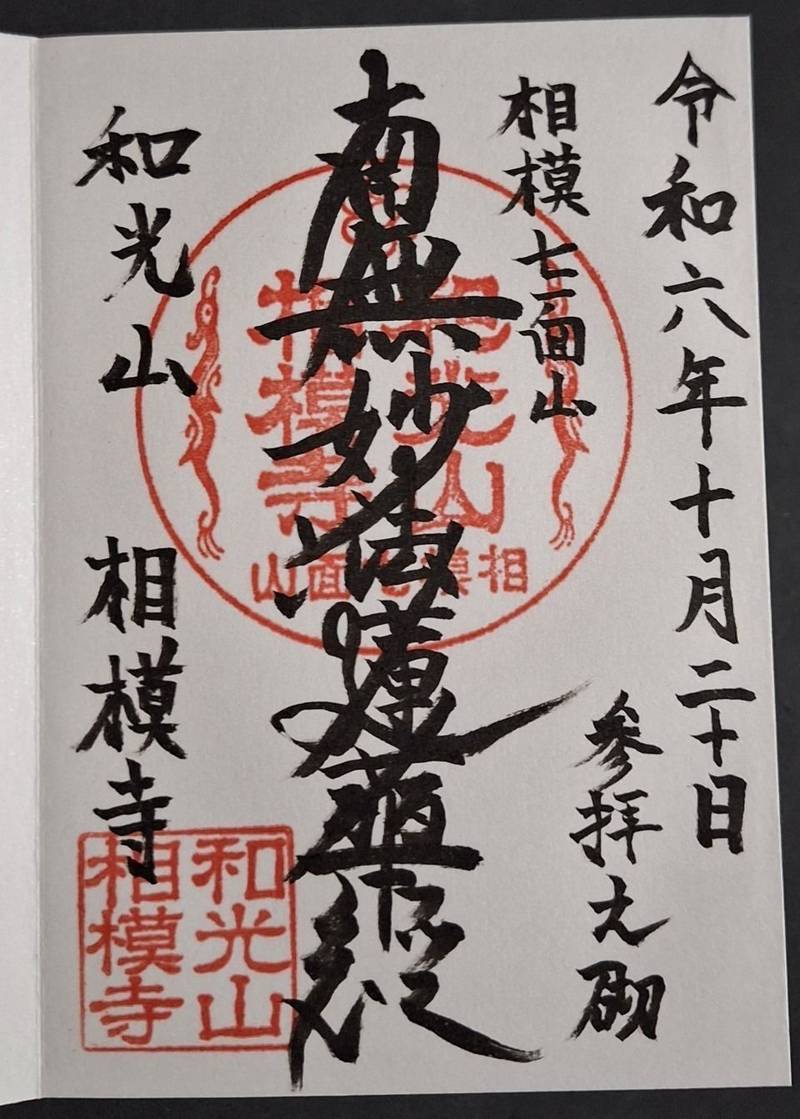 令和六年十月二十日
参拝之砌
相模七面山
南無妙法蓮華経
和光山 相模寺
和光山
相模寺
相模七面山
和光山
相模寺